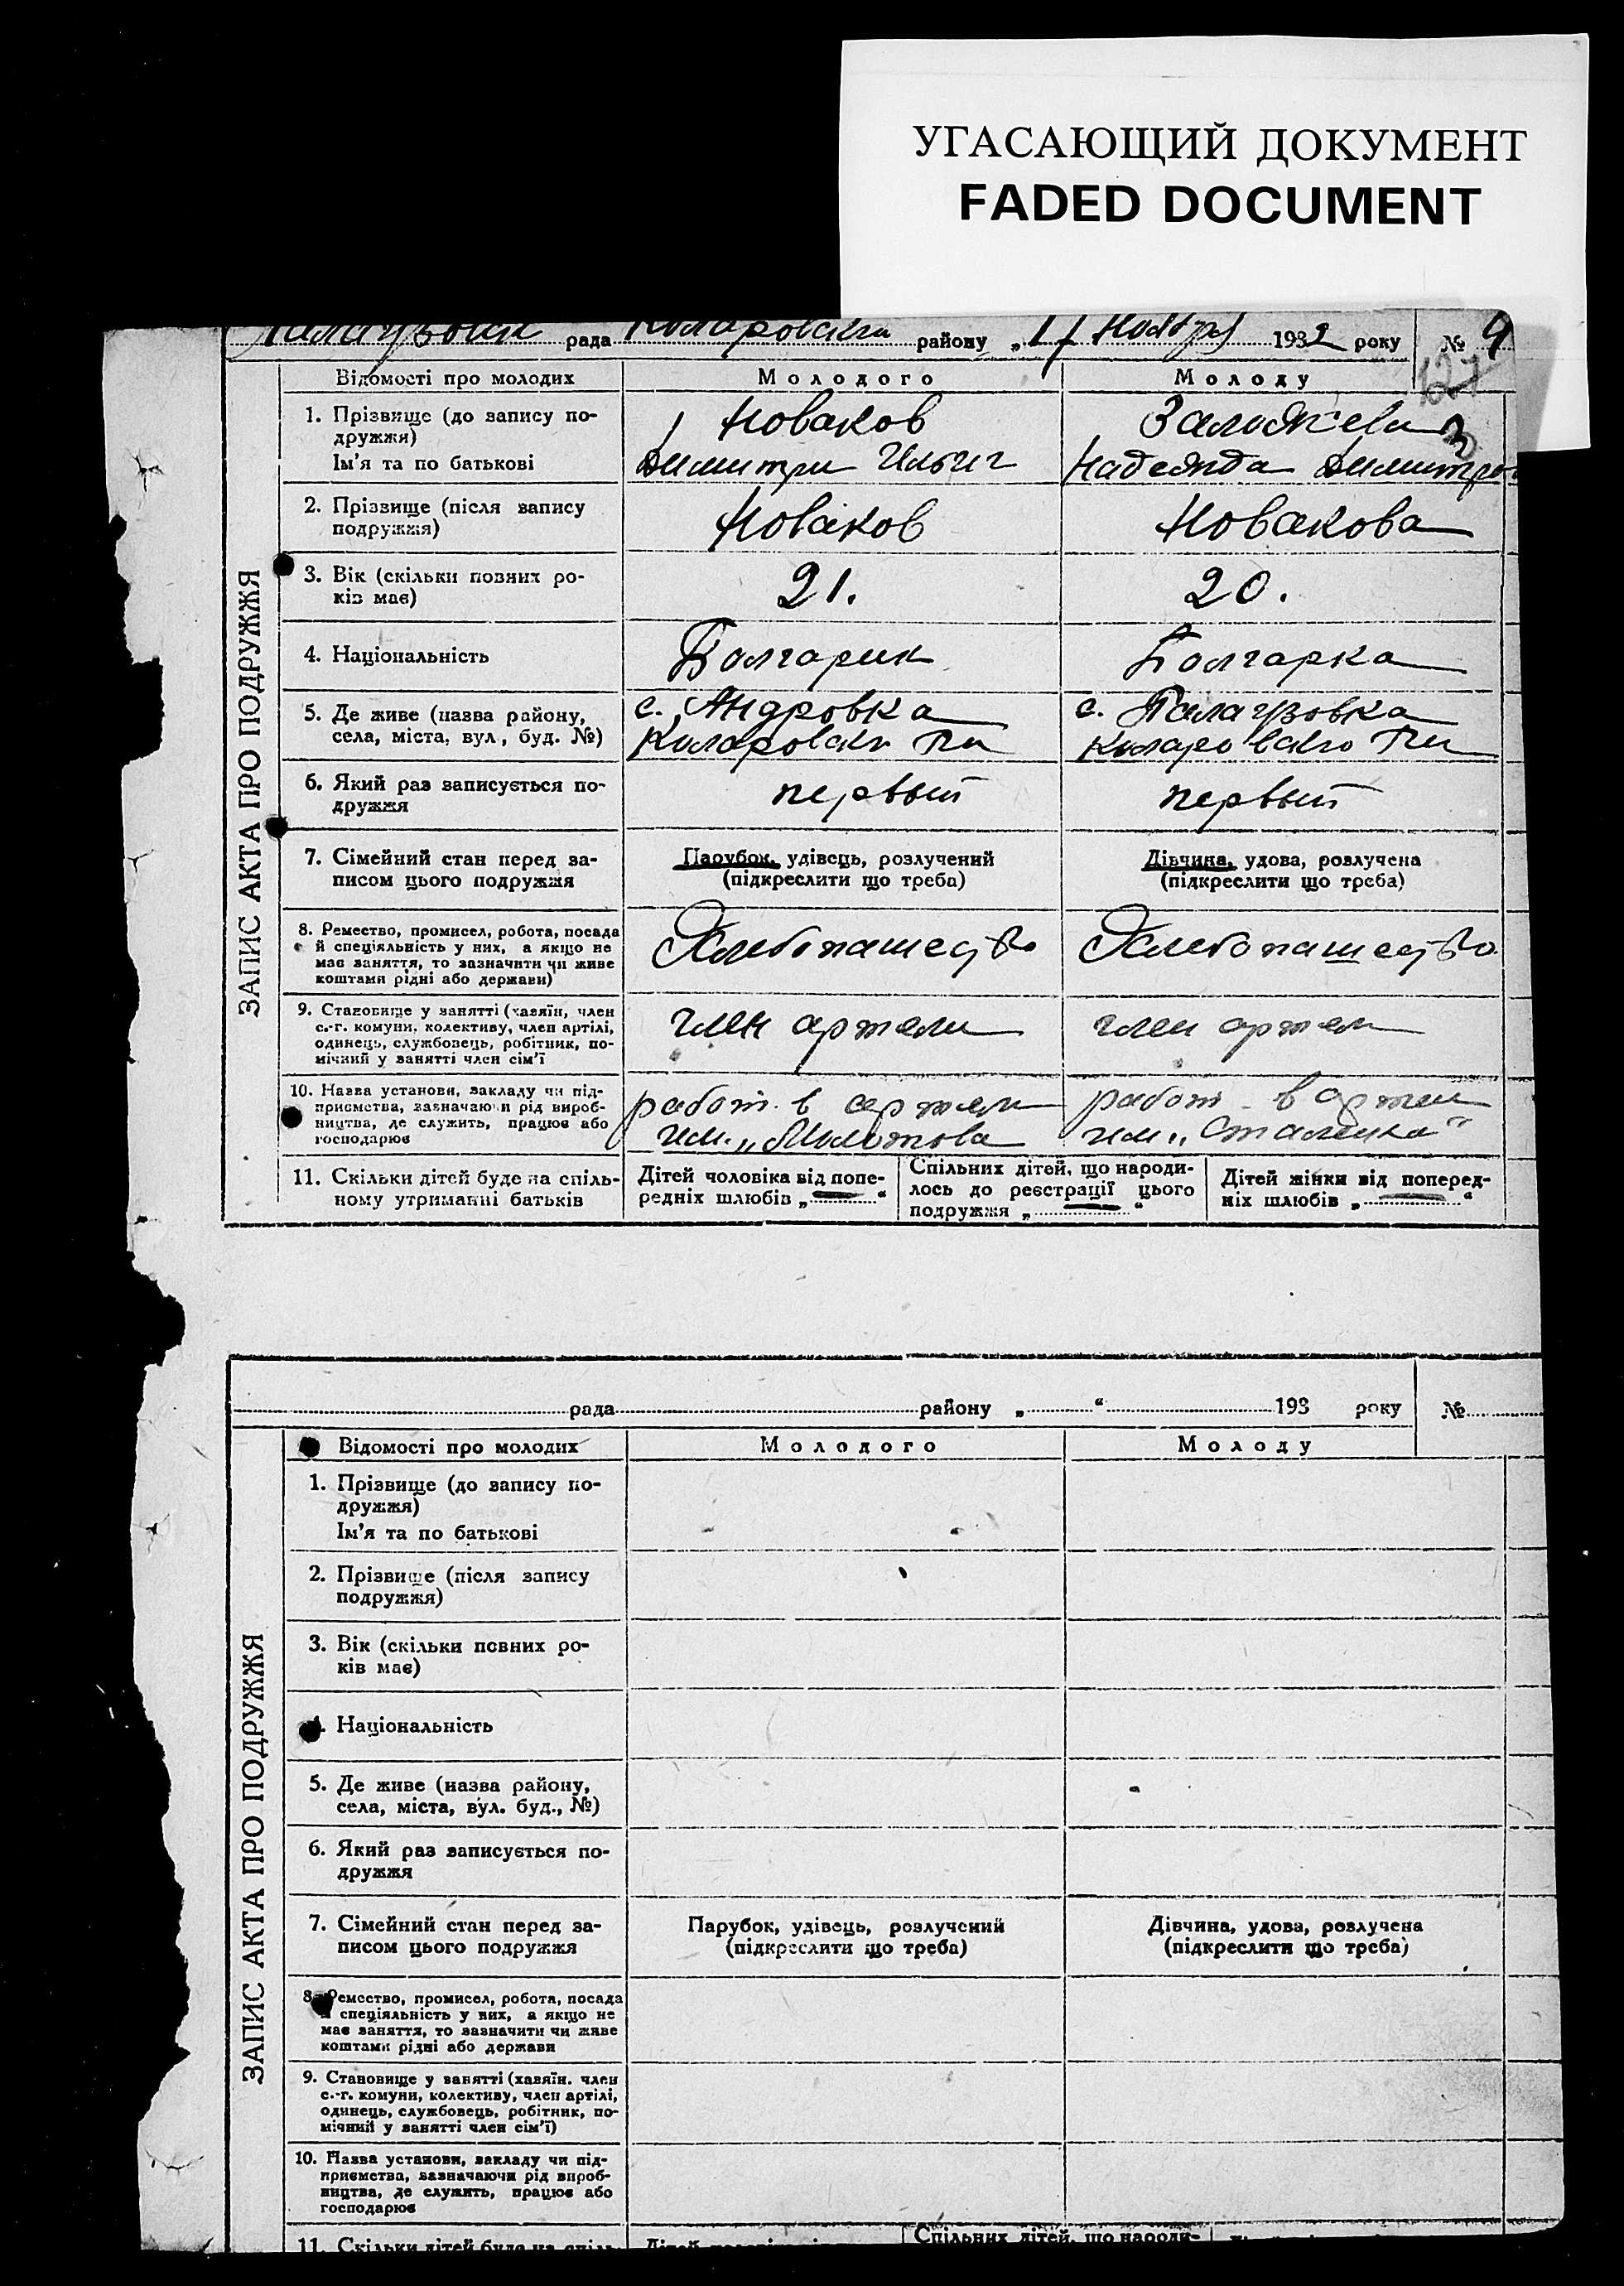 УГАСАЮЩИЙ ДОКУМЕНТ
FADED DOCUMENT
рада Коларовского району „17 Ноября 1932 року № 9
127
Відомості про молодих
Молодого
Молоду
1. Прізвище (до запису по-
дружжя)
Ім'я та по батькові
Новаков
Димитри Ильич
Надежда Димитро
2. Прізвище (після запису
подружжя)
Новаков
Новакова
3. Вік (скільки повних ро-
ків має)
21.
20.
4. Національність
Болгарин
Болгарка
5. Де живе (назва району,
села, міста, вул., буд. №)
с. Андровка
Коларовск Рн
с. Палаузовка
Коларовско Рн
6. Який раз записується по-
дружжя
первый
первый
7. Сімейний стан перед за-
писом цього подружжя
Парубок, удівець, розлучений
(підкреслити що треба)
Дівчина, удова, розлучена
(підкреслити що треба)
8. Ремество, промисел, робота, посада
й спеціяльність у них, а якщо не
має заняття, то зазначити чи живе
коштами рідні або держави)
Хлебопашество
Хлебопашество
9. Становище у занятті (хазяїн, член
с.-г. комуни, колективу, член артілі,
одинець, службовець, робітник, по-
мічний у занятті член сім'ї
член артели
член артел
10. Назва установи, закладу чи під-
приємства, зазначаючи рід вироб-
ництва, де служить, працює або
господарює
работ. в артели
им. „Молотова
работ в артели
им „Сталина"
11. Скільки дітей буде на спіль-
ному утриманні батьків
Дітей чоловіка від попе-
редніх шлюбів „ — "
Спільних дітей, що народи-
лось до реєстрації цього
подружжя „ — "
Дітей жінки від поперед-
ніх шлюбів „ — "
ЗАПИС АКТА ПРО ПОДРУЖЖЯ
рада району „ " 193 року №
Відомості про молодих
Молодого
Молоду
1. Прізвище (до запису по-
дружжя)
Ім'я та по батькові
2. Прізвище (після запису
подружжя)
3. Вік (скільки повних ро-
ків має)
4. Національність
5. Де живе (назва району,
села, міста, вул. буд., №)
6. Який раз записується по-
дружжя
7. Сімейний стан перед за-
писом цього подружжя
Парубок, удівець, розлучений
(підкреслити що треба)
Дівчина, удова, розлучена
(підкреслити що треба)
8. Ремество, промисел, робота, посада
й спеціяльність у них, а якщо не
має заняття, то зазначити чи живе
коштами рідні або держави
9. Становище у занятті (хазяїн. член
с.-г. комуни, колективу, член артілі,
одинець, службовець, робітник, по-
мічний у занятті член сім'ї)
10. Назва установи, закладу чи під-
приємства, зазначаючи рід вироб-
ництва, де служить, працює або
господарює
11. Скільки дітей буде на спіль-
Спільних дітей, що народи-
ЗАПИС АКТА ПРО ПОДРУЖЖЯ